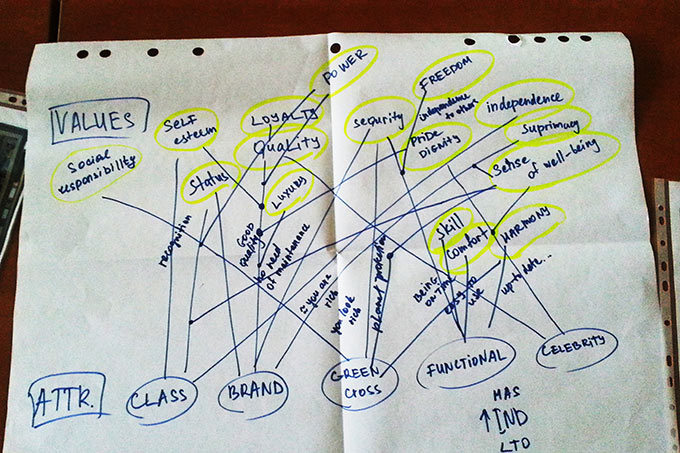 VALUES
Social
responsibility
SELF
esteem
Status
LOYALTY
Quality
LUXURY
POWER
sequrity
FREEDOM
independence
to others
PRIDE
DIGNITY
independence
Suprimacy
Sense
of well-being
Skill
Comfort
HARMONY
recognition
Good
quality
no need
of maintenance
if you are
rich
you look
rich
planet protection
Being
on time
easy to
use
up to date...
ATTR.
CLASS
BRAND
GREEN
CROSS
FUNCTIONAL
CELEBRITY
MAS
↑ IND
LTD